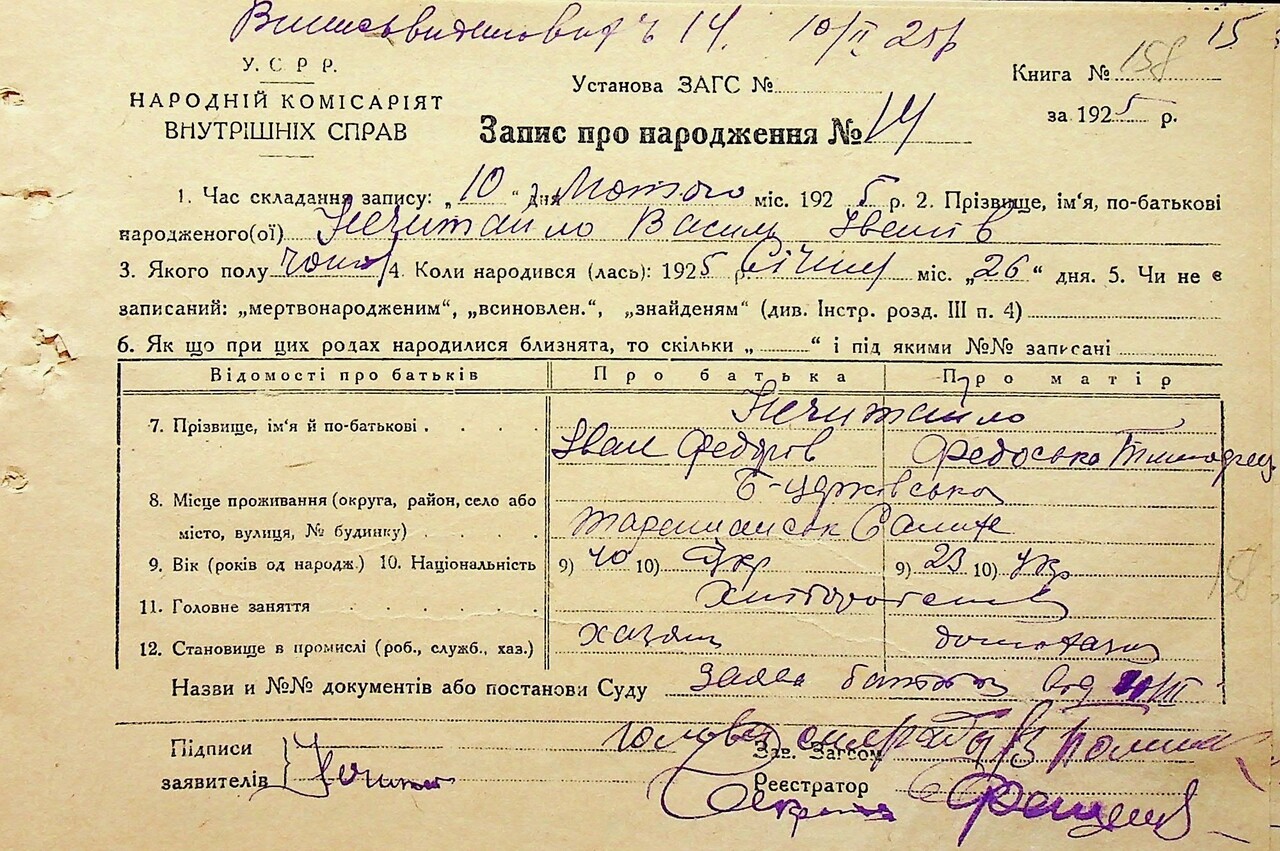 Випись видано ч 14. 10/II 25р 15
У.С.Р.Р.
НАРОДНІЙ КОМІСАРІЯТ
ВНУТРІШНІХ СПРАВ
Установа ЗАГС №
Книга № 158
за 1925 р.
Запис про народження № 14
1. Час складання запису: „10“ дня Лютого міс. 1925 р. 2. Прізвище, ім'я, по-батькові
народженого(ої) Нечитайло Василь Іванів
3. Якого полу чолов 4. Коли народився (лась): 1925 р. Січня міс. „26“ дня. 5. Чи не є
записаний: „мертвонародженим“, „всиновлен.“, „знайденям“ (див. Інстр. розд. III п. 4)
6. Як що при цих родах народилися близнята, то скільки „ “ і під якими №№ записані
Відомості про батьків Про батька Про матір
7. Прізвище, ім'я й по-батькові Нечитайло
Іван Федорів Федоська
8. Місце проживання (округа, район, село або Б-церківська
місто, вулиця, № будинку)
9. Вік (років од народж.) 10. Національність 9) 40 10) Укр 9) 23 10) Укр
11. Головне заняття Хліборобство
12. Становище в промислі (роб., служб., хаз.) хазяїн домохазяй
Назви и №№ документів або постанови Суду Заява батька від 10/II
Підписи голова сільради
заявителів Зав. Загсом
Реєстратор
Секретар